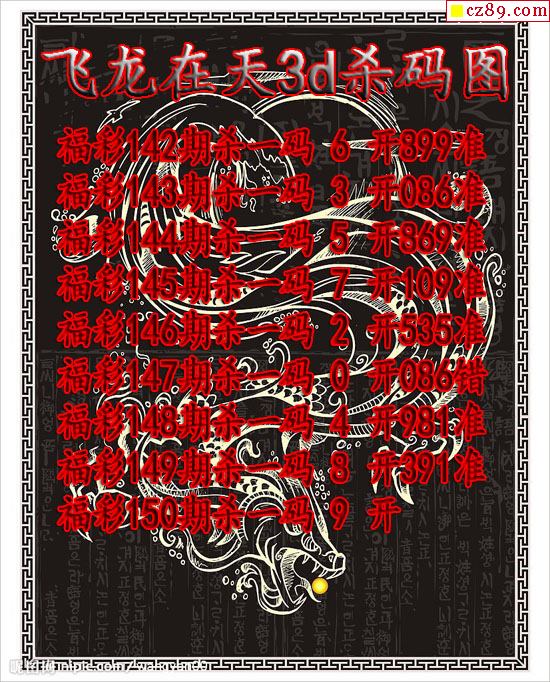 cz89.com
飞龙在天3d杀码图
福彩142期杀一码 6 开899准
福彩143期杀一码 3 开086准
福彩144期杀一码 5 开869准
福彩145期杀一码 7 开109准
福彩146期杀一码 2 开535准
福彩147期杀一码 0 开086错
福彩148期杀一码 4 开981准
福彩149期杀一码 8 开391准
福彩150期杀一码 9 开